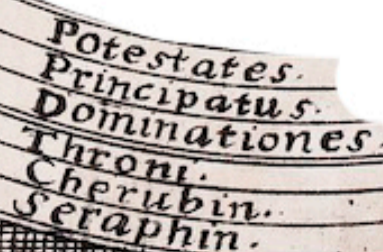 Potestates.
Principatus.
Dominationes.
Throni.
Cherubin.
Seraphin.